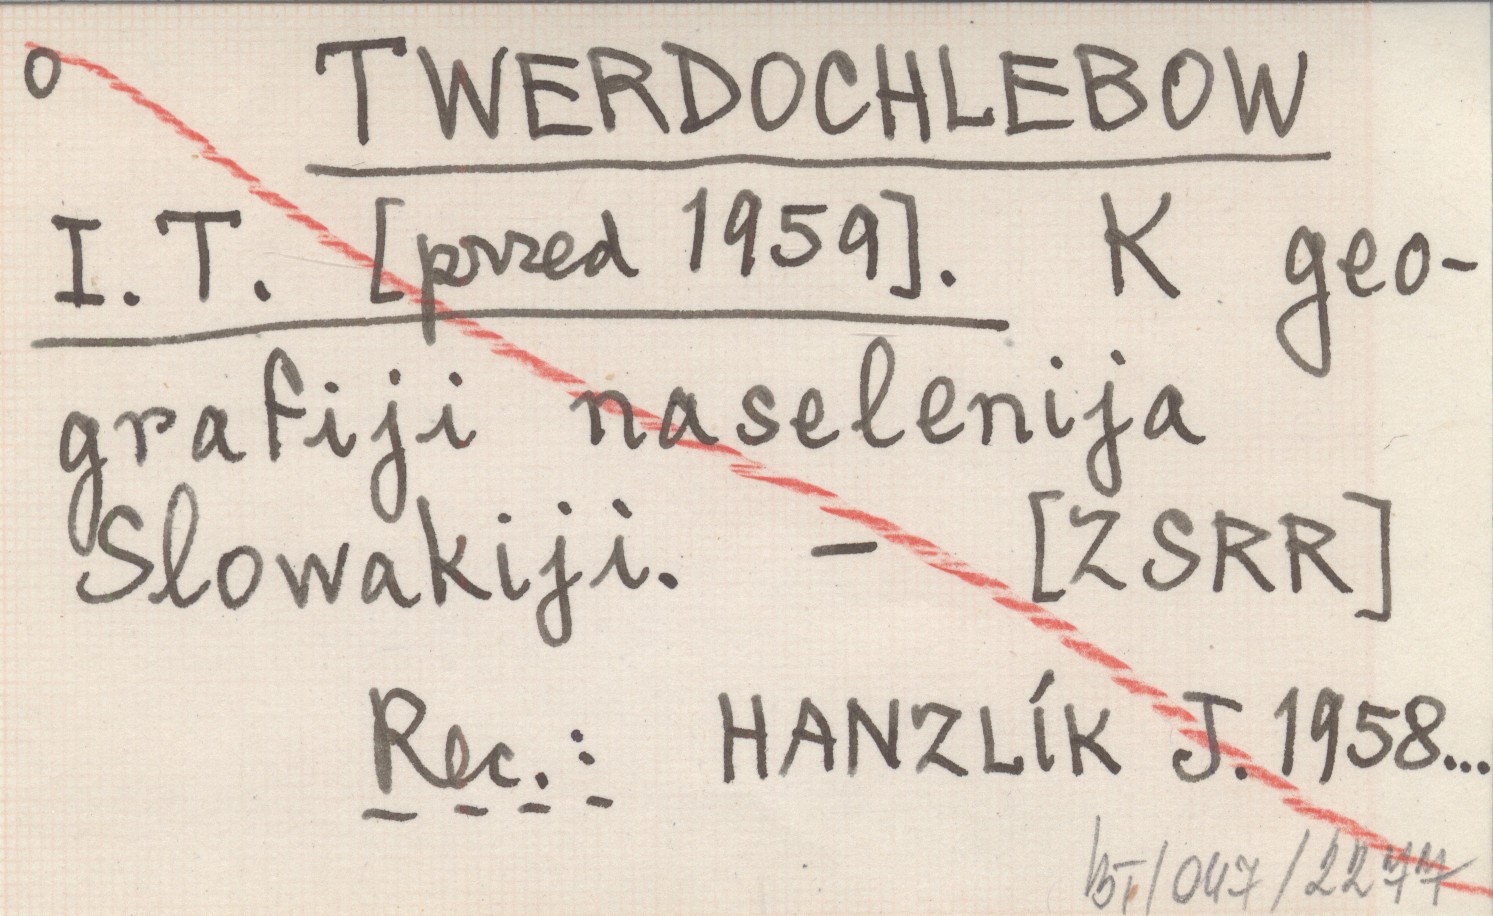 o TWERDOCHLEBOW
I.T. [przed 1959]. K geo-
grafiji naselenija
Slowakiji. – [ZSRR]
Rec.: HANZLÍK J. 1958...
/047/2277